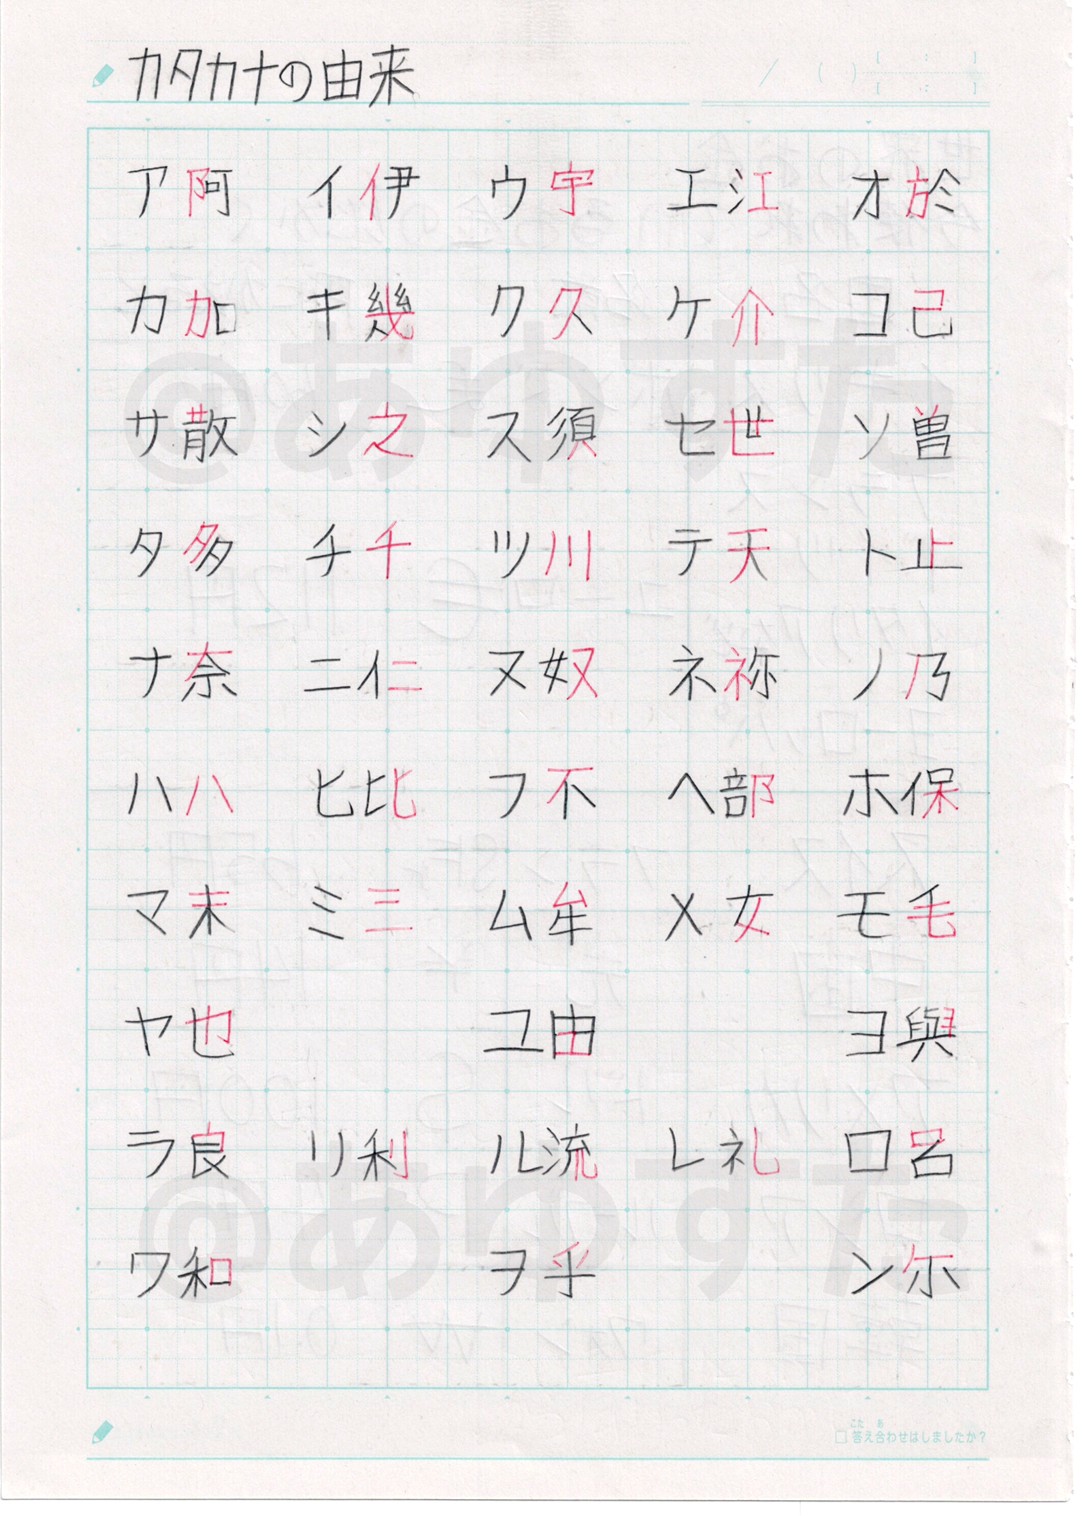 カタカナの由来
ア阿 イ伊 ウ宇 エ江 オ於
カ加 キ幾 ク久 ケ介 コ己
@あゆすた
サ散 シ之 ス須 セ世 ソ曽
タ多 チ千 ツ川 テ天 ト止
ナ奈 ニ仁 ヌ奴 ネ祢 ノ乃
ハ八 ヒ比 フ不 ヘ部 ホ保
マ末 ミ三 ム牟 メ女 モ毛
ヤ也 ユ由 ヨ與
ラ良 リ利 ル流 レ礼 ロ呂
@あゆすた
ワ和 ヲ乎 ン尓
こた あ
答え合わせはしましたか?